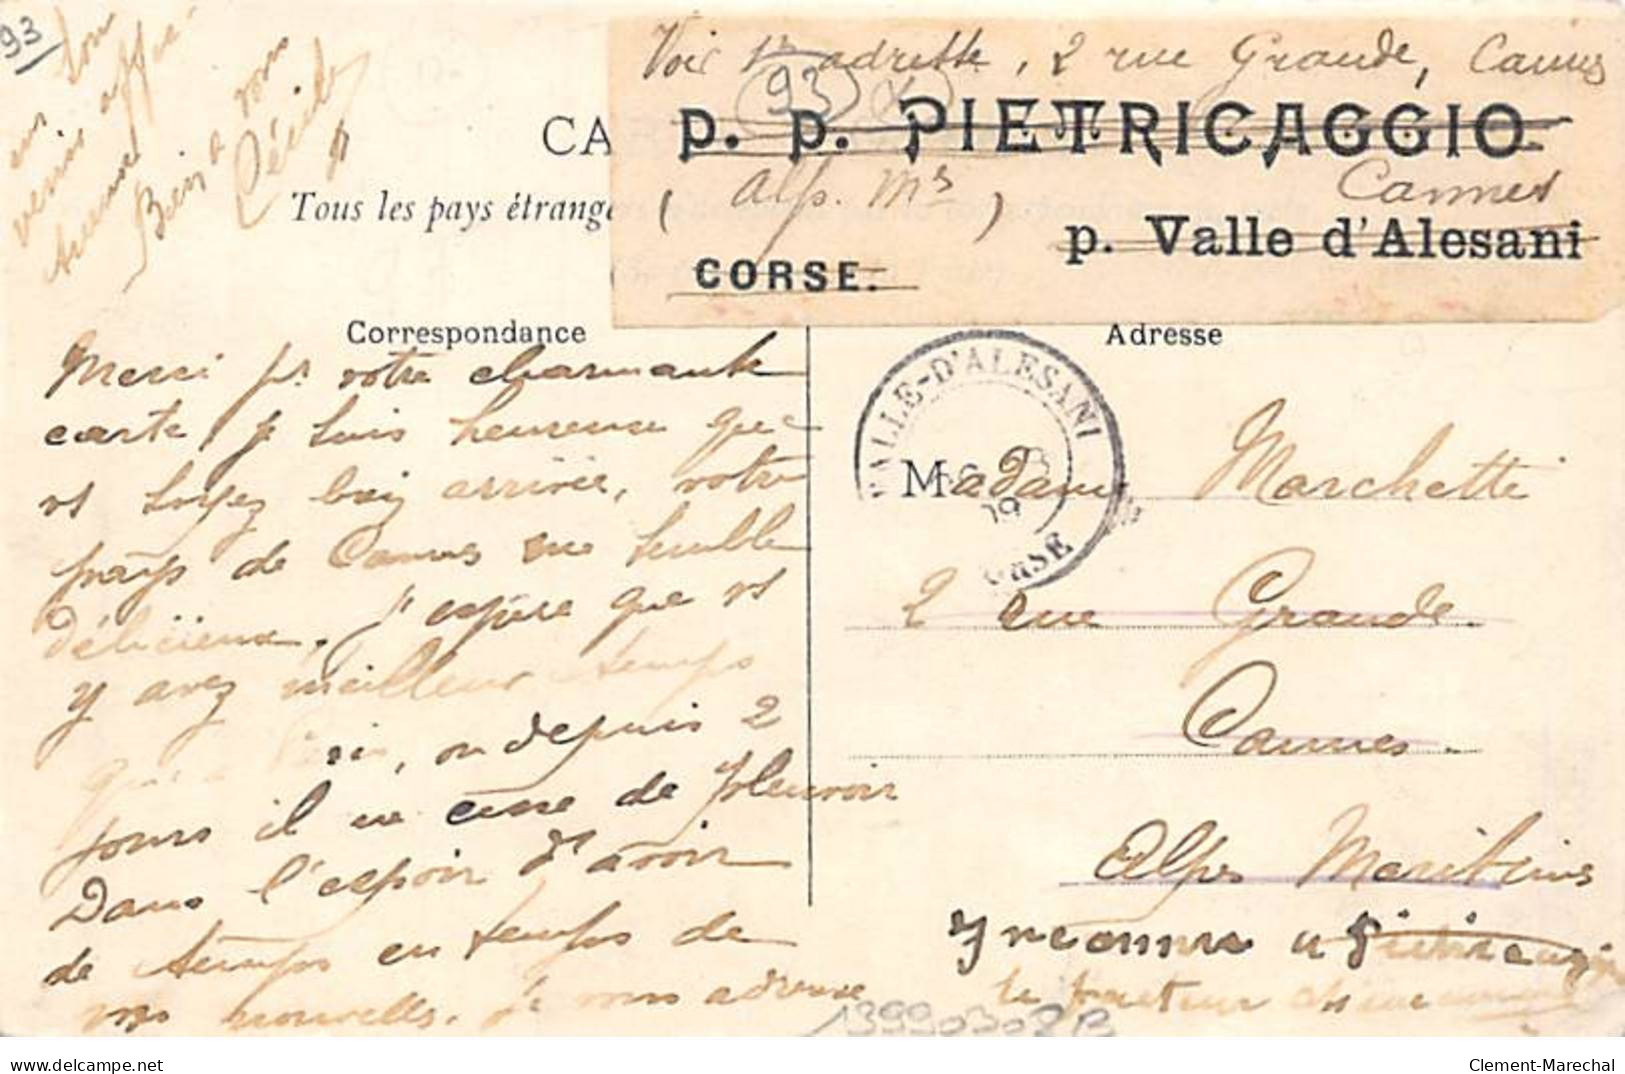 93
en
venir
Bien a vous
Cécile
Voir 1re adresse, 2 rue Grande, Cannes
93
P. P. PIETRICAGGIO
(Alp. Mes) Cannes
p. Valle d'Alesani
CORSE.
CA
Tous les pays étrange
Correspondance
Adresse
Merci pr votre charmante
carte, je suis heureuse que
vs soyez bien arrivée, votre
pays de Cannes me semble
délicieux, j'espère que vs
y avez meilleur temps
qu'à Paris, ou depuis 2
jours il ne cesse de pleuvoir
Dans l'espoir d'avoir
de temps en temps de
vos nouvelles, je vous adresse
VALLE-D'ALESANI
CORSE
Madame Marchetti
2 rue Grande
Cannes
Alpes Maritimes
Inconnu a Pietricaggio
le facteur
13990308B
delcampe.net
Clement-Marechal